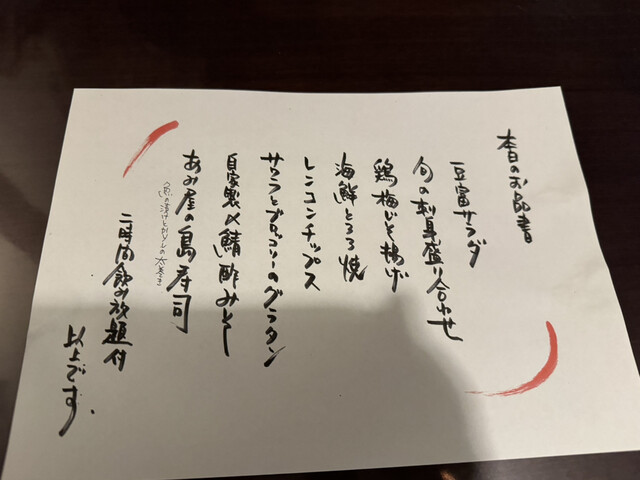 本日のお品書
豆富サラダ
旬の刺身盛り合わせ
鶏梅しそ揚げ
海鮮とろろ焼
レンコンチップス
サワラとブロッコリーのグラタン
自家製〆鯖酢みそ
あみ屋の島寿司
二時間飲み放題付
以上です。